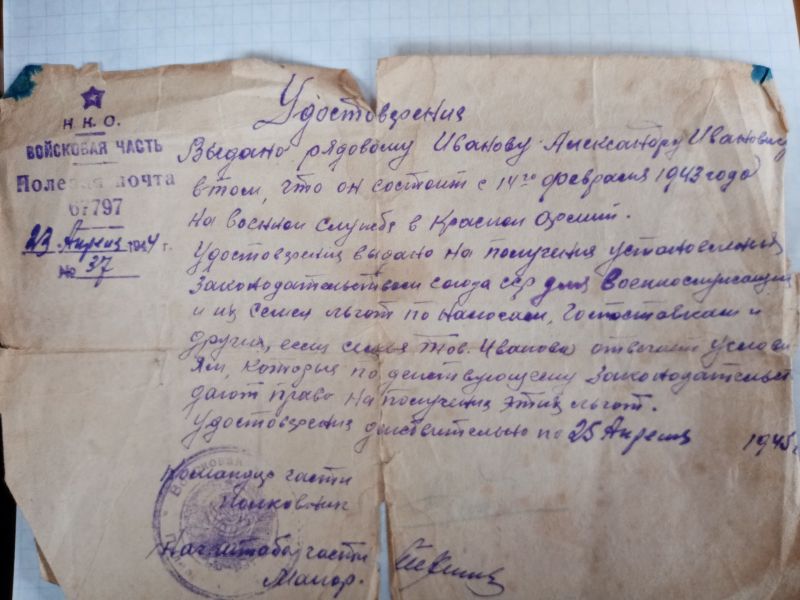 Н.К.О.
ВОЙСКОВАЯ ЧАСТЬ
Полевая почта
67797
23 Апреля 1944 г.
№ 37
Удостоверения
Выдано рядовому Иванову Александру Ивановичу
в том, что он состоит с 14го февраля 1943 года
на военной службе в Красной Армии.
Удостоверения выдано на получения установленных
Законодательством союза сср для Военнослужащих
и их семей льгот по налогам, Госпоставкам и
другия, если семья тов. Иванова отвечает услови-
ям, которыя по действующему Законодательст
дают право на получения этих льгот.
Удостоверения действительно по 25 Апреля 1945 г
Командир части
Полковник
Нач штаба части
Майор.
Войсковая